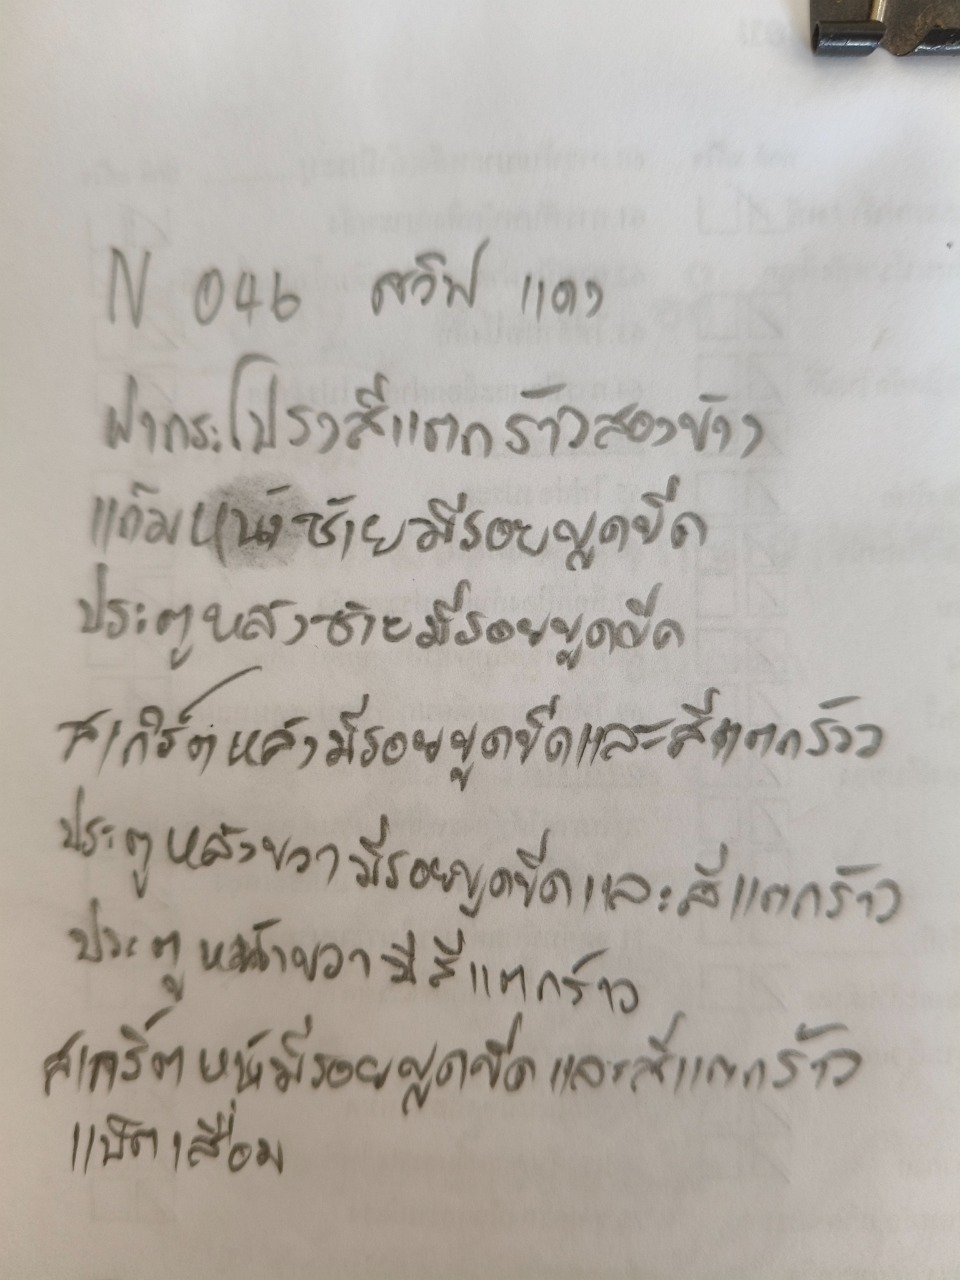 N 046 สวิฟ แดง
ฝากระโปรงสีแตกร้าวสองข้าง
แก้มหน้าซ้ายมีรอยขูดขีด
ประตูหลังซ้ายมีรอยขูดขีด
สเกิร์ตหลังมีรอยขูดขีดและสีแตกร้าว
ประตูหลังขวามีรอยขูดขีดและสีแตกร้าว
ประตูหน้าขวามีสีแตกร้าว
สเกริ์ตหน้ามีรอยขูดขีดและสีแตกร้าว
แบ็ตเสื่อม